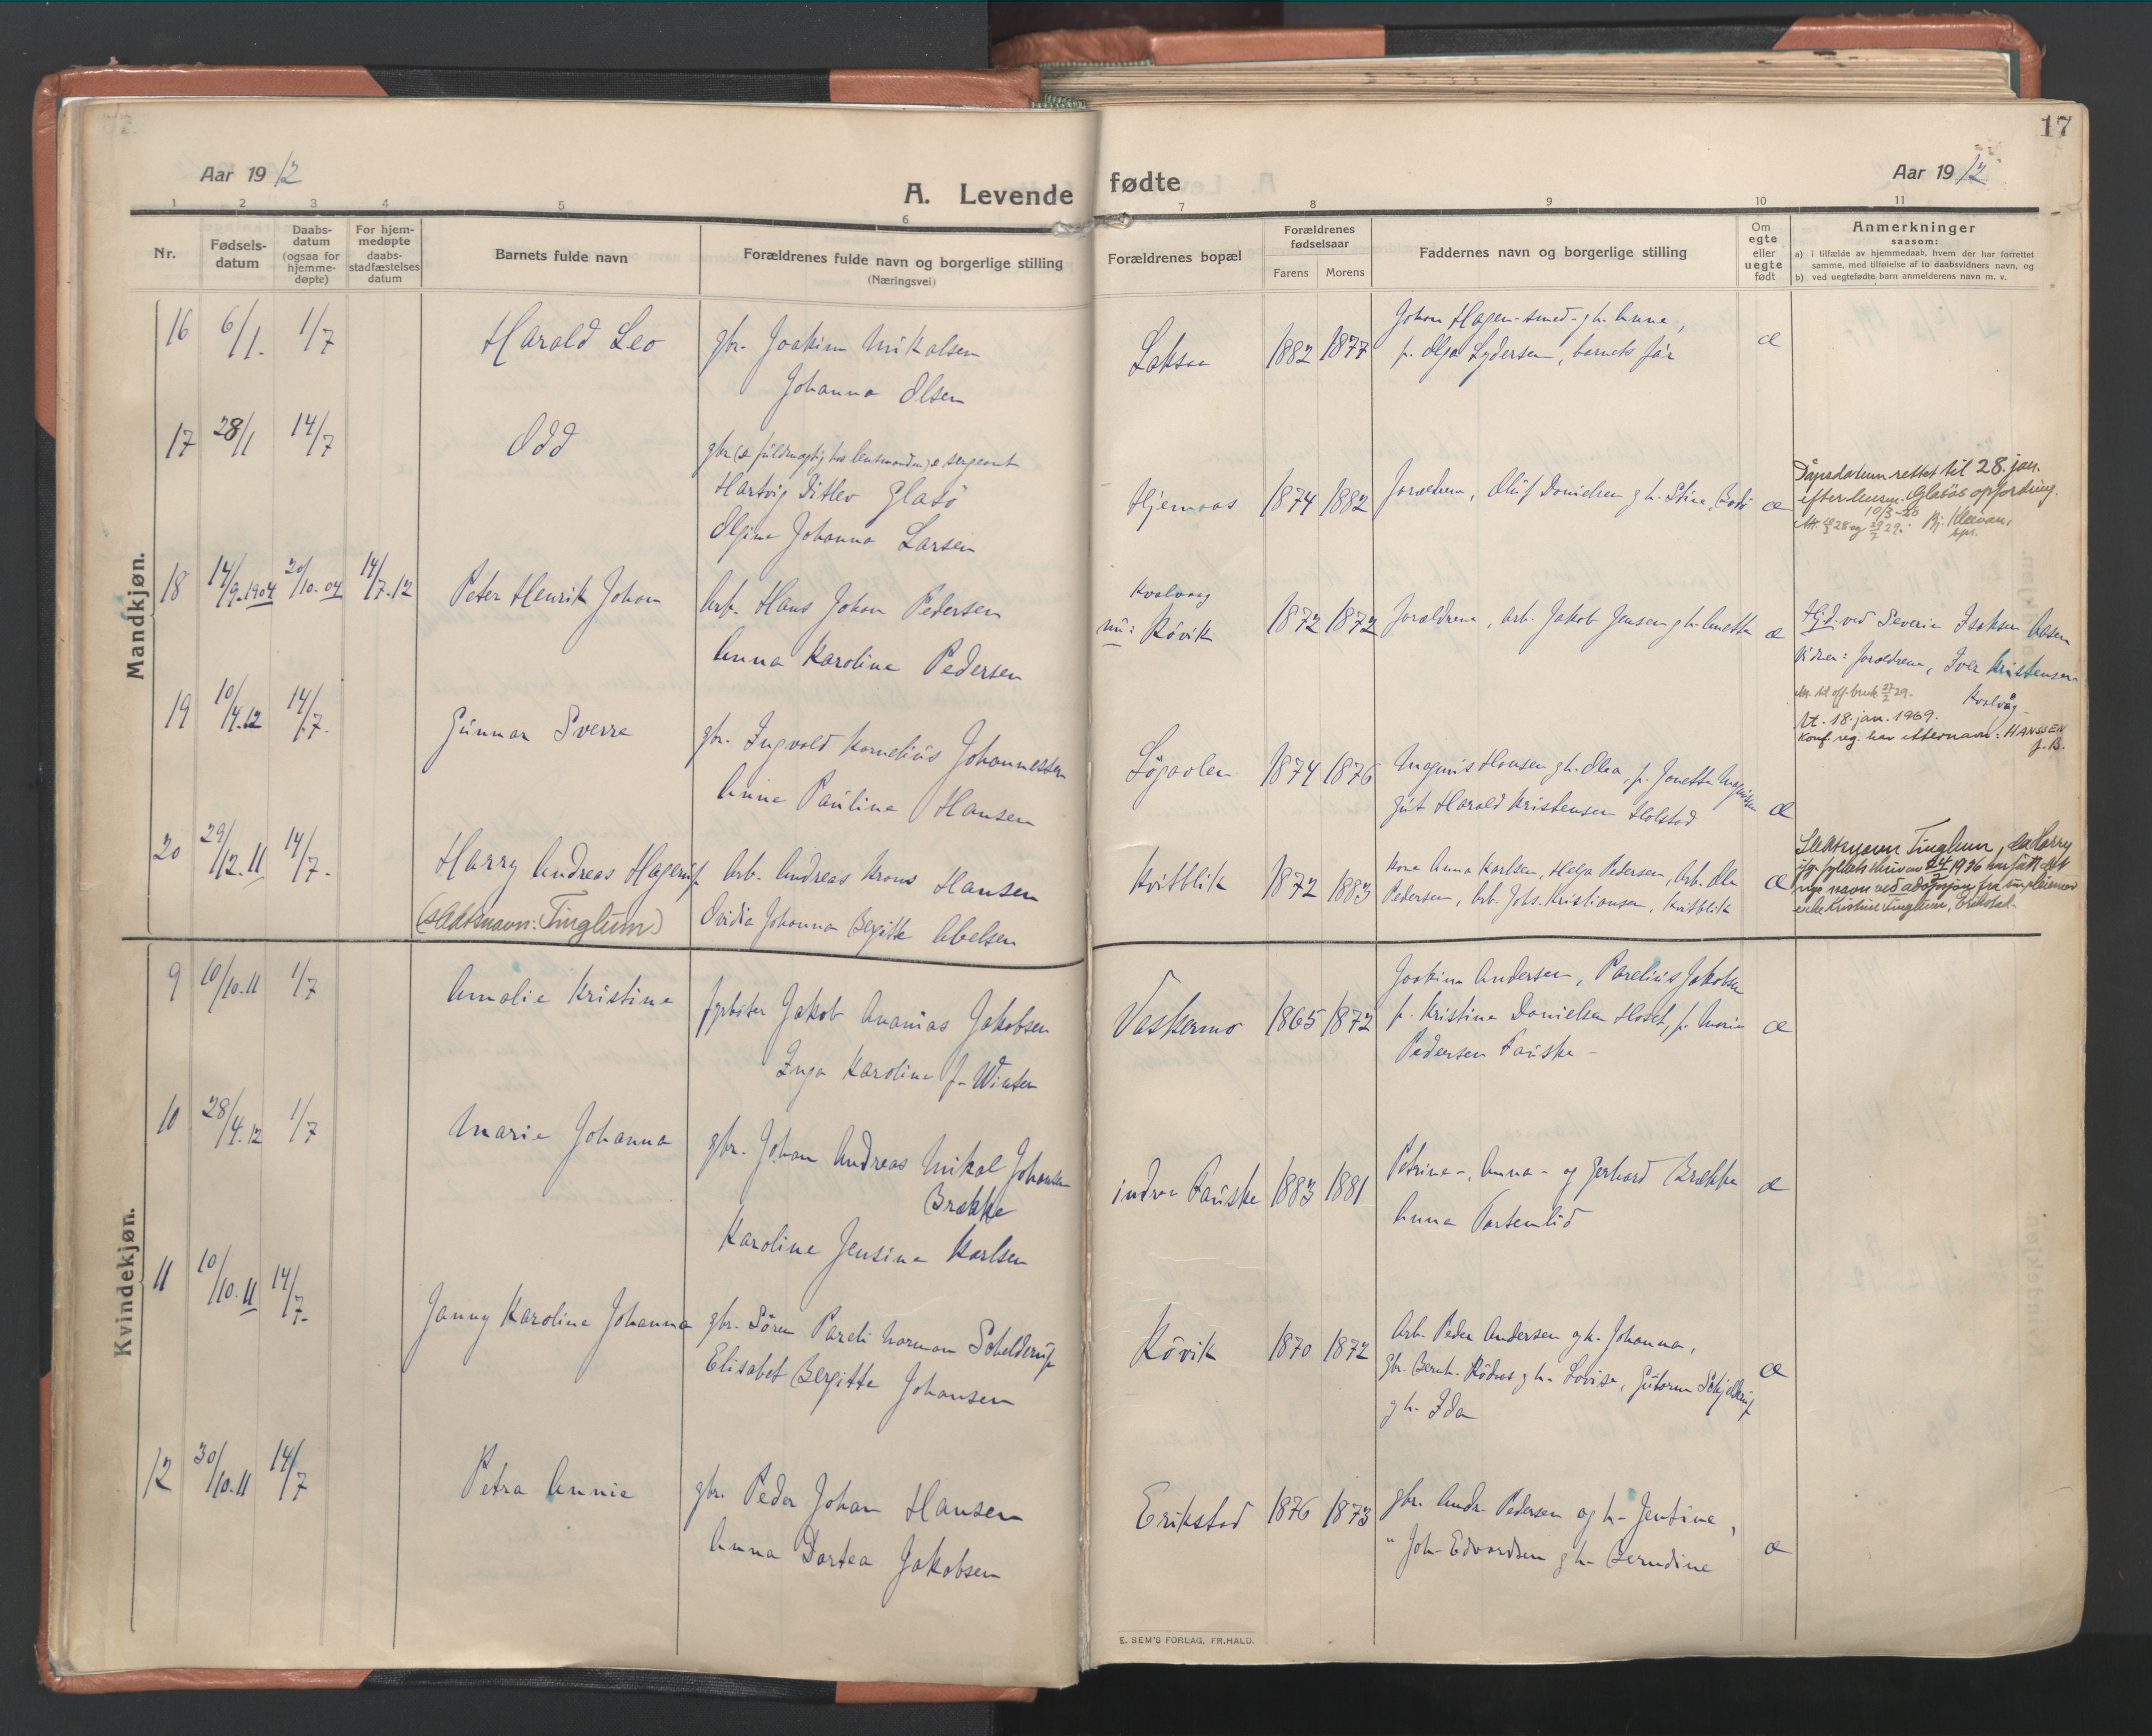 17
Aar 1912
A. Levende fødte
Aar 1912
1 2 3 4 5 6 7 8 9 10 11
Nr.
Fødsels-
datum
Daabs-
datum
(ogsaa for
hjemme-
døpte)
For hjem-
medøpte
daabs-
stadfæstelses
datum
Barnets fulde navn
Forældrenes fulde navn og borgerlige stilling
(Næringsvei)
Forældrenes bopæl
Forældrenes
fødselsaar
Farens Morens
Faddernes navn og borgerlige stilling
Om
egte
eller
uegte
født
Anmerkninger
saasom:
a) i tilfælde av hjemmedaab, hvem der har forrettet
samme, med tilføielse af to daabsvidners navn, og
b) ved uegtefødte barn anmelderens navn m. v.
Mandkjøn.
16 6/1. 1/7 Harald Leo
gbr. Joakim Mikalsen
Johanna Olsen
Laksaa 1882 1877
Johan Hagen - smed - g h. Anna,
p. Olga Lydersen, barnets far
æ
17 28/1 14/7 Odd
gbr (& fuldmægtig hos lensmanden) & sergeant
Hartvig Ditlev Glasö
Olgine Johanna Larsen
Hjemaas 1874 1882
Forældrene, Oluf Danielsen g h. Stina, Bodö
æ
Dåpsdatum rettet til 28. jan.
efter lensm. Glasös opfordring.
10/3-28
Kj. Kleivan,
spr.
18 14/9.1904 20/10.04 14/7.12 Peter Henrik Johan
Arb. Hans Johan Pedersen
Anna Karoline Pedersen
Kvalvaag
nu: Røvik 1872 1872
Forældrene, arb. Jakob Jensen g h. Anetta
æ
Hjd. ved Severin Isaksen Aasen
Vidner: Forældrene, Iver Kristensen
Kvalvåg
Att. til off. bruk 29.
At. 18. jan. 1969.
Konf. reg. har etternavn: HANSSEN
J. B.
19 10/4.12 14/7. Gunnar Sverre
gbr. Ingvald Kornelius Johannessen
Anne Pauline Hansen
Løgavlen 1874 1876
Magnus Hansen g h. Olea, p. Jonetta Magnussen
gut Harald Kristensen Holstad
æ
20 29/12.11 14/7. Harry Andreas Hagerup
(slektsnavn: Tinglum)
Arb. Andreas Krons Hansen
Ovidia Johanna Bergitte Abelsen
Kvitblik 1872 1883
kone Anna Karlsen, Helga Pedersen, Arb. Ole
Pedersen, Arb. Johs. Kristiansen, Kvitblik
æ
Slektsnavn Tinglum, da Harry
1936 har fått det
nye navn ved adopsjon fra
enke Kristine Tinglum, Erikstad.
Kvindekjøn.
9 10/10.11 1/7 Amalie Kristine
fyrbøter Jakob Ananias Jakobsen
Inga Karoline f. Winter
Vaskermo 1865 1872
Joakim Andersen, Parelius Jakobsen
p. Kristine Danielsen Hoset, p. Marie
Pedersen Fauske -
æ
10 28/4.12 1/7 Marie Johanna
gbr. Johan Andreas Mikal Johansen
Brække
Karoline Jensine Karlsen
indre Fauske 1883 1881
Petrine-, Anna- og Gerhard Brække
Anna Tortenlid
æ
11 10/10.11 14/7. Janny Karoline Johanna
gbr. Sören Pareli Norman Schelderup
Elisabet Bergitte Johansen
Røvik 1870 1872
Arb. Peder Andersen og h. Johanna,
gbr. Bernh. Rödnes g h. Lovise, Gutorm Schjelderup
g h. Ida
æ
12 30/10.11 14/7 Petra Annie
gbr. Peder Johan Hansen
Anna Dortea Jakobsen
Erikstad 1876 1873
gbr. Andr. Pedersen og h. Jentine,
" Joh. Edvardsen g h. Berndine
æ
E. SEM'S FORLAG, FR.HALD.